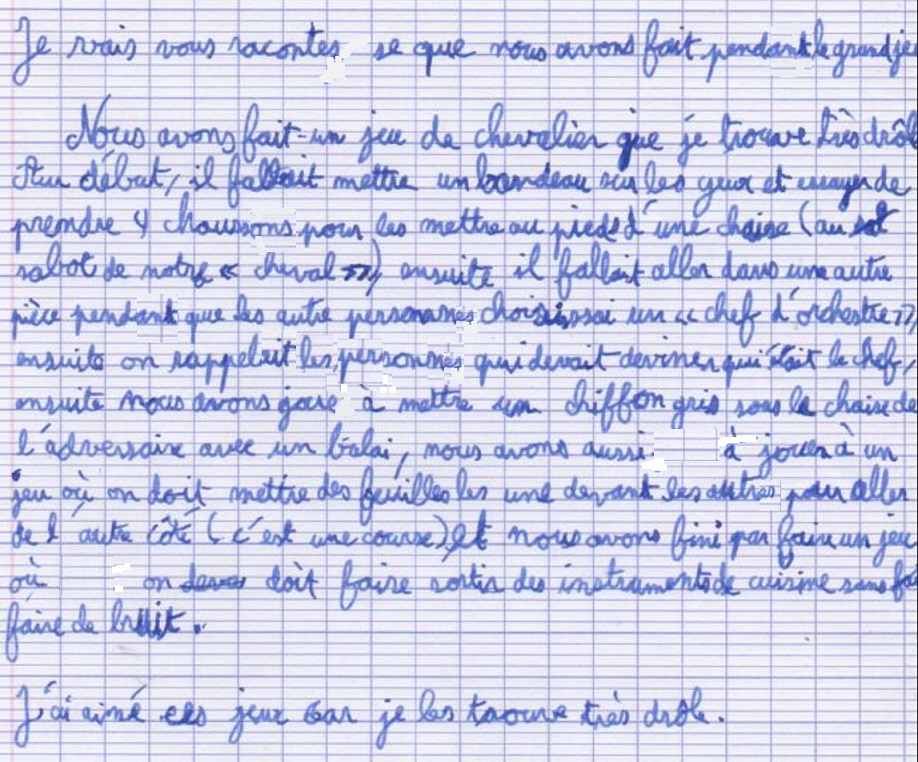 Je vais vous raconter se que nous avons fait pendant le grand je
Nous avons fait un jeu de chevalier que je trouve très drôl
Au début, il fallait mettre un bandeau sur les yeux et essayer de
prendre 4 chaussons pour les mettre au pied d'une chaise (au
sabot de notre « cheval »), ensuite il fallait aller dans une autre
pièce pendant que les autre personnes choisissai un « chef d'orchestre »,
ensuite on rappelait les personnes qui devait deviner qui était le chef,
ensuite nous avons joué à mettre un chiffon gris sous la chaise de
l'adversaire avec un balai, nous avons aussi à jouer à un
jeu où on doit mettre des feuilles les une devant les autres pour aller
de l'autre côté (c'est une course) et nous avons fini par faire un jeu
où on doit faire sortir des instruments de cuisine sans fai
faire de bruit.
J'ai aimé ces jeux car je les trouve très drôle.